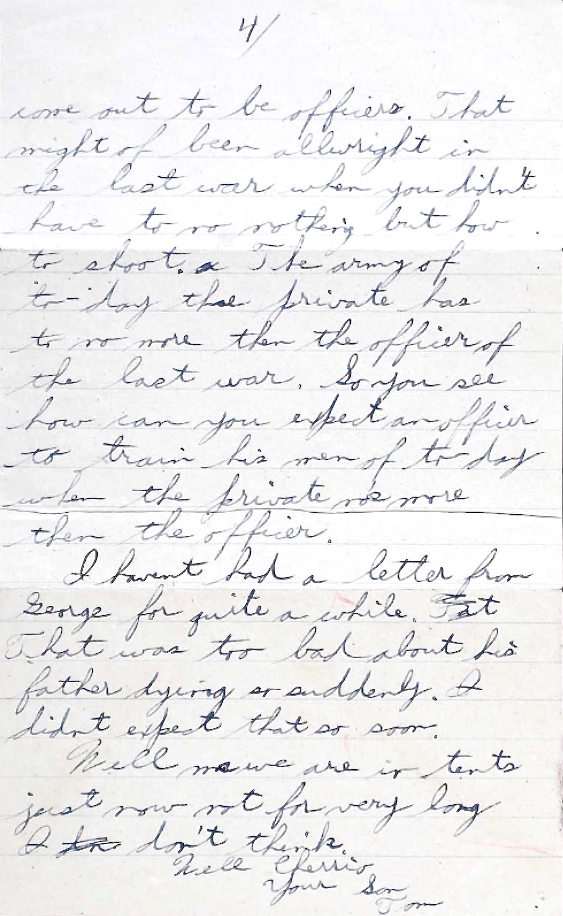 4/
come out to be officers. That
might of been allwright in
the last war when you didn't
have to no nothing but how
to shoot. The army of
to-day the private has
to no more then the officer of
the last war. So you see
how can you expect an officer
to train his men of to-day
when the private nos more
then the officer.
I havent had a letter from
George for quite a while.
That was too bad about his
father dying so suddenly. I
didnt expect that so soon.
Well we are in tents
just now not for very long
I don't think.
Well Cherrio
Your Son
Tom